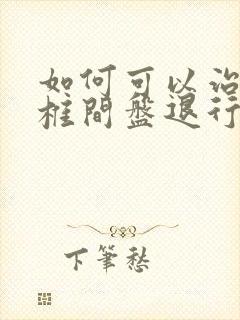 如何可以治
框間盤退行
下筆愁